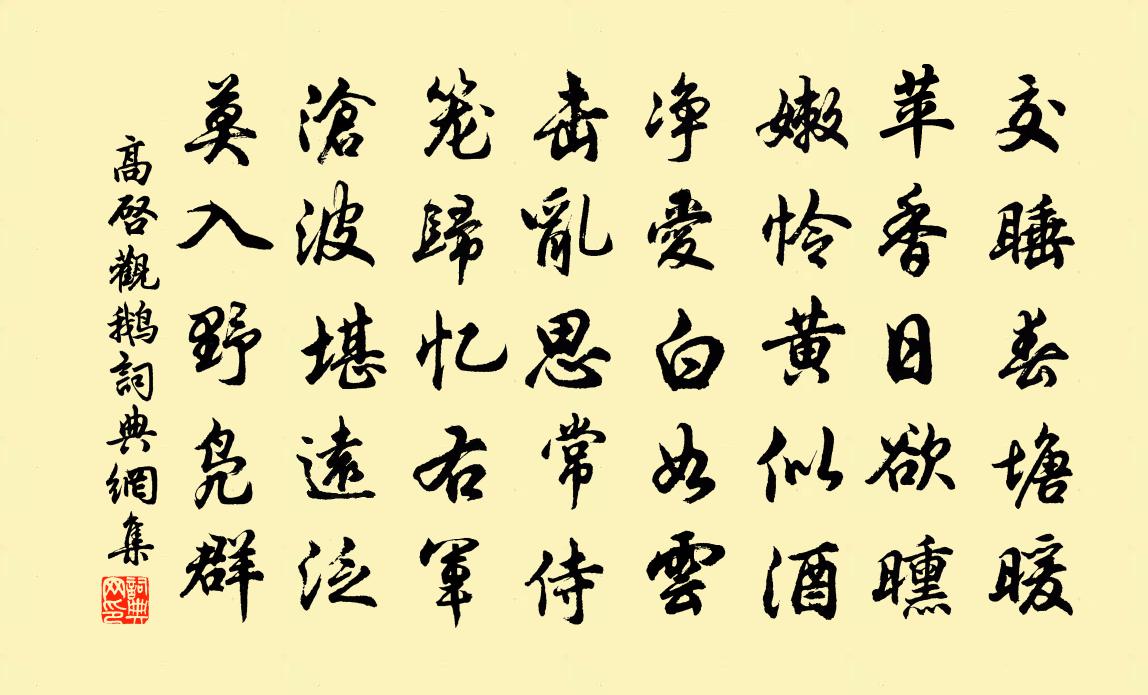 交睡春塘暖
苹香日欲曛
嫩怜黄似酒
净愛白如雲
击亂思常侍
笼歸忆右軍
滄波堪遠泛
莫入野凫群
高啓觀鵝詞典網集
詞典网印